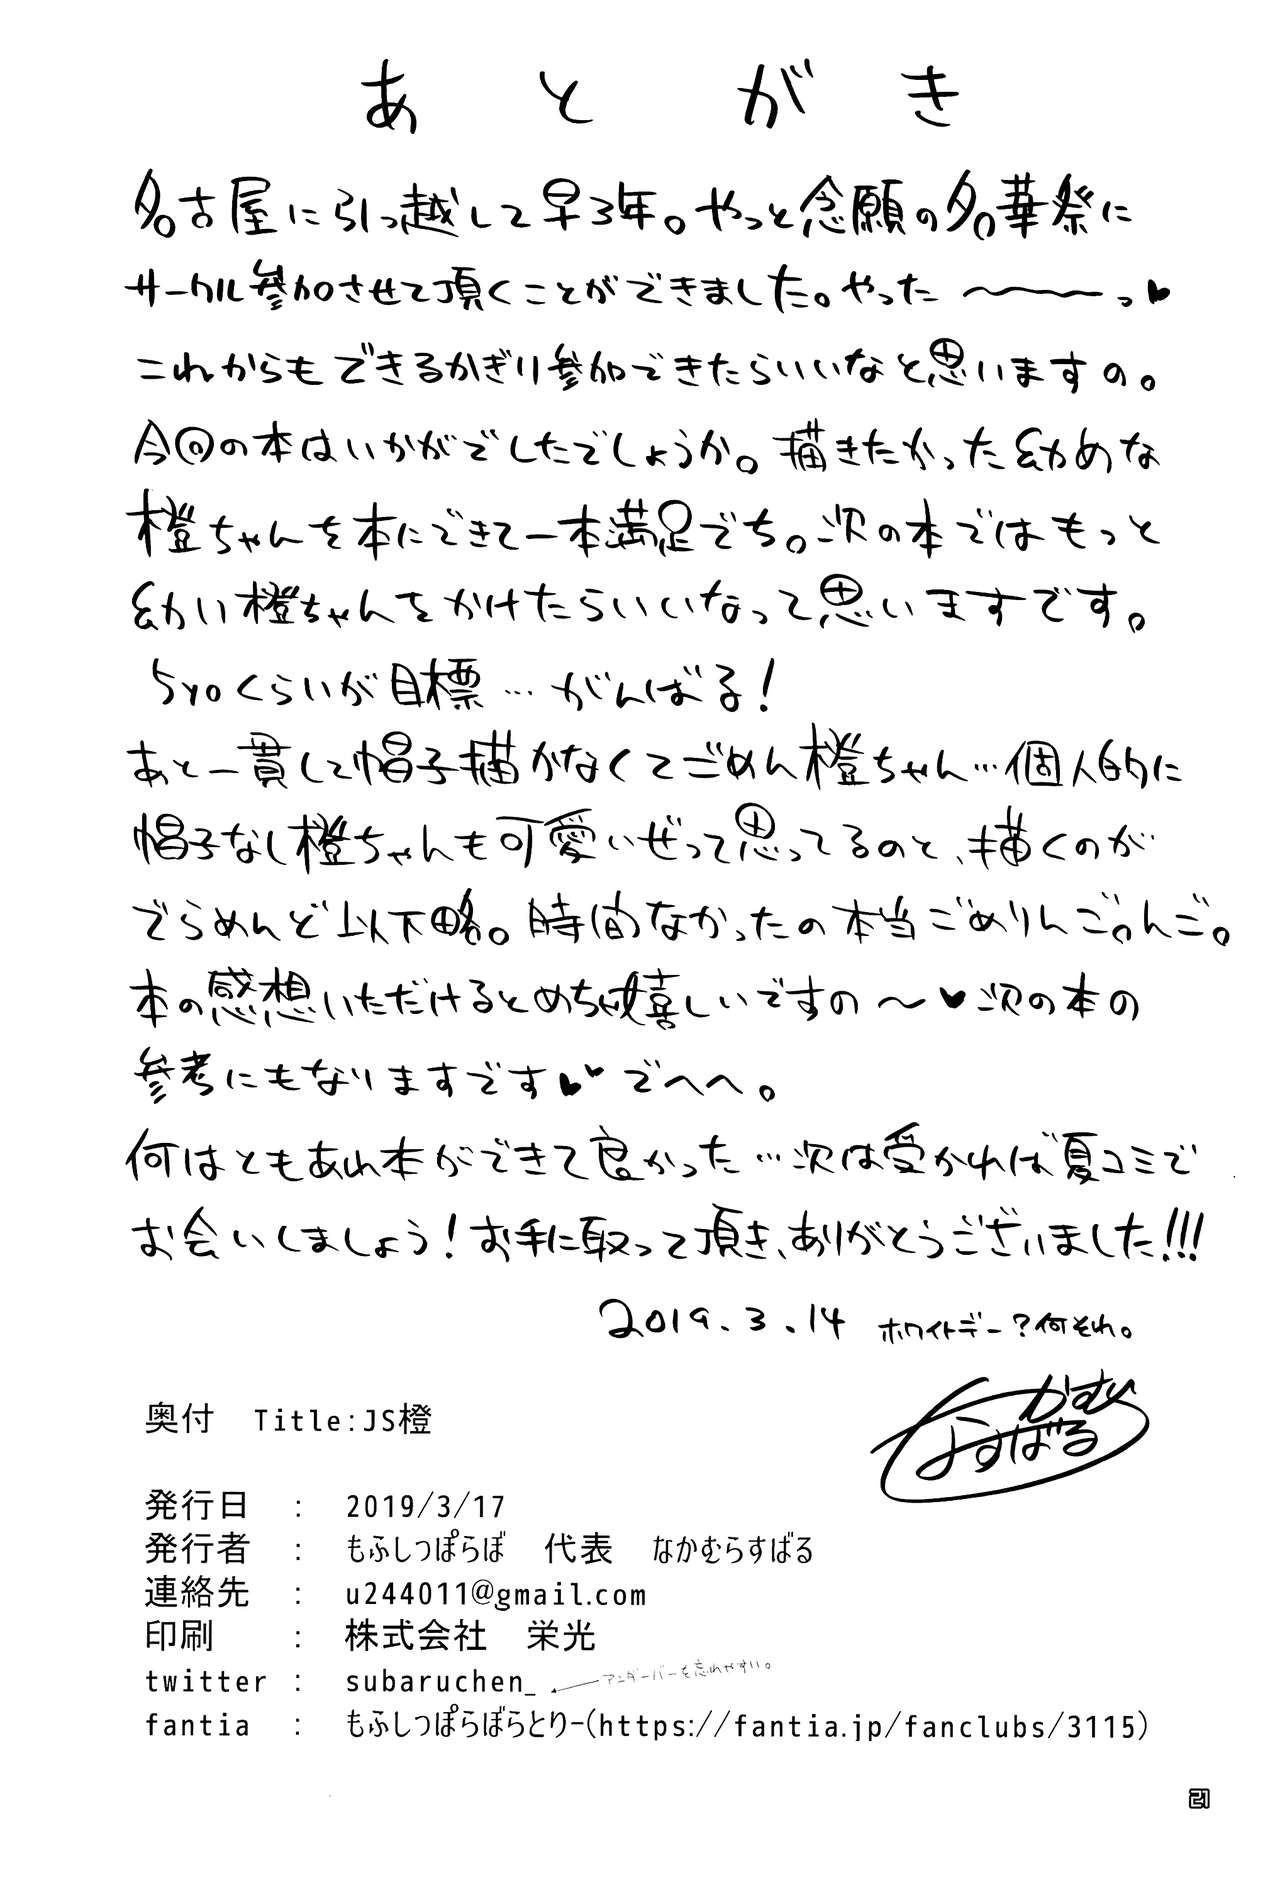 あとがき
名古屋に引っ越して早3年。やっと念願の名華祭に
サークル参加させて頂くことができました。やった〜〜〜っ♥
これからもできるかぎり参加できたらいいなと思いますの。
今回の本はいかがでしたでしょうか。描きたかった幼めな
橙ちゃんを本にできて一本満足でち。次の本ではもっと
幼い橙ちゃんをかけたらいいなって思いますです。
5yoくらいが目標…がんばる!
あと一貫して帽子描かなくてごめん橙ちゃん…個人的に
帽子なし橙ちゃんも可愛いぜって思ってるのと、描くのが
でらめんど以下略。時間なかったの本当ごめりんご。んご。
本の感想いただけるとめちゃ嬉しいですの〜♥次の本の
参考にもなりますです♥♥でへへ。
何はともあれ本ができて良かった…次は受かれば夏コミで
お会いしましょう!お手に取って頂き、ありがとうございました!!!
2019.3.14 ホワイトデー?何それ。
なかむらすばる
奥付 Title:JS橙
発行日 : 2019/3/17
発行者 : もふしっぽらぼ 代表 なかむらすばる
連絡先 : u244011@gmail.com
印刷 : 株式会社 栄光
twitter : subaruchen_ アンダーバーを忘れやすい。
fantia : もふしっぽらぼらとりー(https://fantia.jp/fanclubs/3115)
21